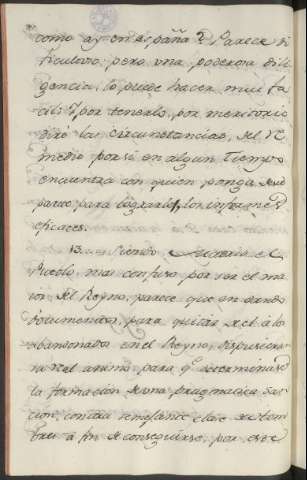 como ay en España? Parece di
ficultoso; pero una poderosa dili
gencia, lo puede hacer mui fa
cil: Y por tenerlo, por meritorio
diré las circunstancias, del re
medio por si en algun tiempo
encuentra con quien ponga de su
parte para lograrlo, los informes
eficaces.
13. Siendo el
Pueblo, mas confuso por ser el ma
ior del Reyno, parece que en dando
documentos, para quitar a lo
abandonados en el Reyno, dispusiera
el animo, para q.e determinase
la formacion de una pragmatica San
cion, contra semejante clase
a fin de conseguirse, por este